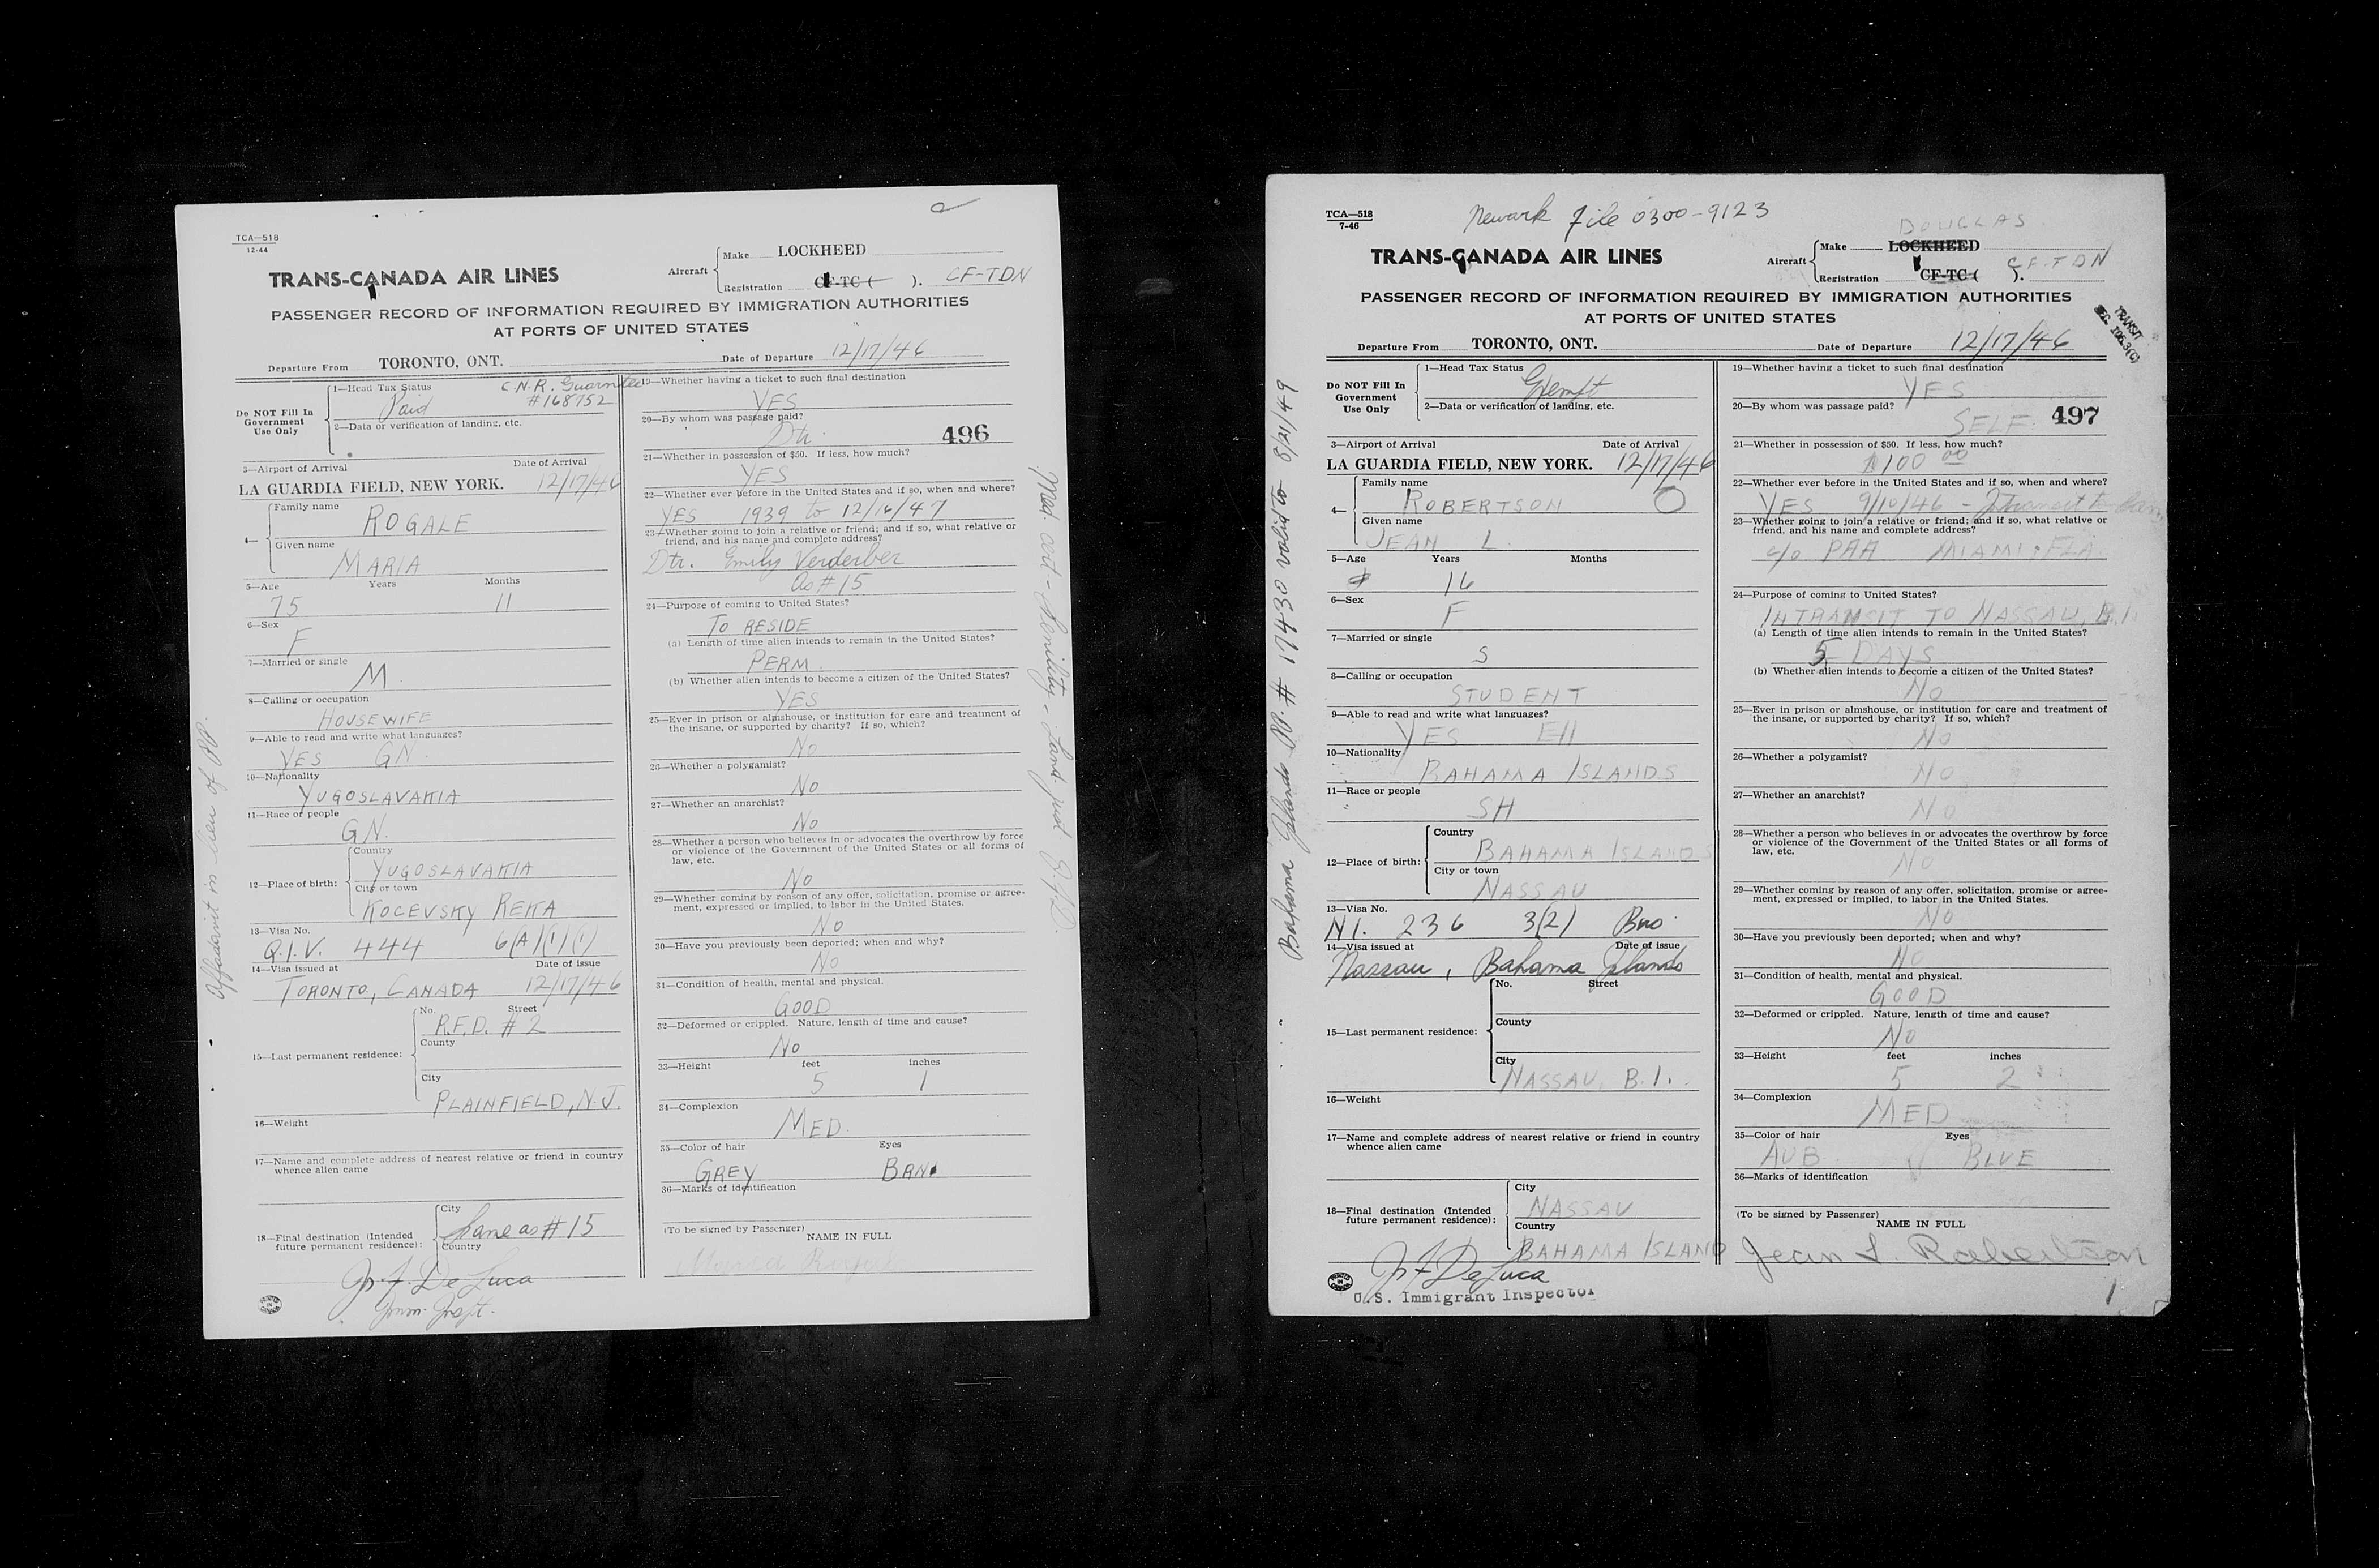 TCA—518
12-44
TRANS-CANADA AIR LINES
Aircraft
Make LOCKHEED
Registration CF-TC ( ). CF-TDN
PASSENGER RECORD OF INFORMATION REQUIRED BY IMMIGRATION AUTHORITIES
AT PORTS OF UNITED STATES
Departure From TORONTO, ONT. Date of Departure 12/17/46
Do NOT Fill In
Government
Use Only
1—Head Tax Status C.N.R. Guarntee
Paid #168752
2—Data or verification of landing, etc.
3—Airport of Arrival Date of Arrival
LA GUARDIA FIELD, NEW YORK. 12/17/46
4—
Family name
ROGALE
Given name
MARIA
5—Age Years Months
75 11
6—Sex
F
7—Married or single
M
8—Calling or occupation
HOUSEWIFE
9—Able to read and write what languages?
YES GN
10—Nationality
YUGOSLAVAKIA
11—Race or people
GN.
12—Place of birth:
Country
YUGOSLAVAKIA
City or town
KOCEVSKY REKA
13—Visa No.
Q.I.V. 444 6(A)(1)(1)
14—Visa issued at Date of issue
TORONTO, CANADA 12/17/46
15—Last permanent residence:
No. Street
R.F.D. #2
County
City
PLAINFIELD, N.J.
16—Weight
17—Name and complete address of nearest relative or friend in country
whence alien came
18—Final destination (Intended
future permanent residence):
City
Same as #15
Country
De Luca
Imm. Inspt.
Affidavit in lieu of PP.
19—Whether having a ticket to such final destination
YES
20—By whom was passage paid?
Dtr. 496
21—Whether in possession of $50. If less, how much?
YES
22—Whether ever before in the United States and if so, when and where?
YES 1939 to 12/16/47
23—Whether going to join a relative or friend; and if so, what relative or
friend, and his name and complete address?
Dtr. Emily Verderber
As #15
24—Purpose of coming to United States?
TO RESIDE
(a) Length of time alien intends to remain in the United States?
PERM.
(b) Whether alien intends to become a citizen of the United States?
YES
25—Ever in prison or almshouse, or institution for care and treatment of
the insane, or supported by charity? If so, which?
NO
26—Whether a polygamist?
NO
27—Whether an anarchist?
NO
28—Whether a person who believes in or advocates the overthrow by force
or violence of the Government of the United States or all forms of
law, etc.
NO
29—Whether coming by reason of any offer, solicitation, promise or agree-
ment, expressed or implied, to labor in the United States.
NO
30—Have you previously been deported; when and why?
NO
31—Condition of health, mental and physical.
GOOD
32—Deformed or crippled. Nature, length of time and cause?
NO
33—Height feet inches
5 1
34—Complexion
MED.
35—Color of hair Eyes
GREY BRN.
36—Marks of identification
(To be signed by Passenger)
NAME IN FULL
Med. cert - Senility -
TCA—518
7-46
Newark File 0300-9123
TRANS-CANADA AIR LINES
Aircraft
DOUGLAS
Make LOCKHEED
Registration CF-TC ( ). CF-TDN
PASSENGER RECORD OF INFORMATION REQUIRED BY IMMIGRATION AUTHORITIES
AT PORTS OF UNITED STATES
TRANSIT
SEC. 3(C)
Departure From TORONTO, ONT. Date of Departure 12/17/46
Do NOT Fill In
Government
Use Only
1—Head Tax Status
Exempt
2—Data or verification of landing, etc.
3—Airport of Arrival Date of Arrival
LA GUARDIA FIELD, NEW YORK. 12/17/46
4—
Family name
ROBERTSON
Given name
JEAN L.
5—Age Years Months
16
6—Sex
F
7—Married or single
S
8—Calling or occupation
STUDENT
9—Able to read and write what languages?
YES EH
10—Nationality
BAHAMA ISLANDS
11—Race or people
SH
12—Place of birth:
Country
BAHAMA ISLANDS
City or town
NASSAU
13—Visa No.
NI. 236 3(2)
14—Visa issued at Date of issue
Nassau, Bahama Islands
15—Last permanent residence:
No. Street
County
City
NASSAU, B.I.
16—Weight
17—Name and complete address of nearest relative or friend in country
whence alien came
18—Final destination (Intended
future permanent residence):
City
NASSAU
Country
BAHAMA ISLAND
De Luca
U.S. Immigrant Inspector
Bahama Islands PP.# 17430 valid to 8/21/49
19—Whether having a ticket to such final destination
YES
20—By whom was passage paid?
SELF. 497
21—Whether in possession of $50. If less, how much?
$100 00
22—Whether ever before in the United States and if so, when and where?
YES 9/10/46 - Intransit to Can.
23—Whether going to join a relative or friend; and if so, what relative or
friend, and his name and complete address?
c/o PAA MIAMI, FLA.
24—Purpose of coming to United States?
INTRANSIT TO NASSAU, B.I.
(a) Length of time alien intends to remain in the United States?
5 DAYS
(b) Whether alien intends to become a citizen of the United States?
NO
25—Ever in prison or almshouse, or institution for care and treatment of
the insane, or supported by charity? If so, which?
NO
26—Whether a polygamist?
NO
27—Whether an anarchist?
NO
28—Whether a person who believes in or advocates the overthrow by force
or violence of the Government of the United States or all forms of
law, etc.
NO
29—Whether coming by reason of any offer, solicitation, promise or agree-
ment, expressed or implied, to labor in the United States.
NO
30—Have you previously been deported; when and why?
NO
31—Condition of health, mental and physical.
GOOD
32—Deformed or crippled. Nature, length of time and cause?
NO
33—Height feet inches
5 2
34—Complexion
MED
35—Color of hair Eyes
AUB. BLUE
36—Marks of identification
(To be signed by Passenger)
NAME IN FULL
Jean L. Robertson
1